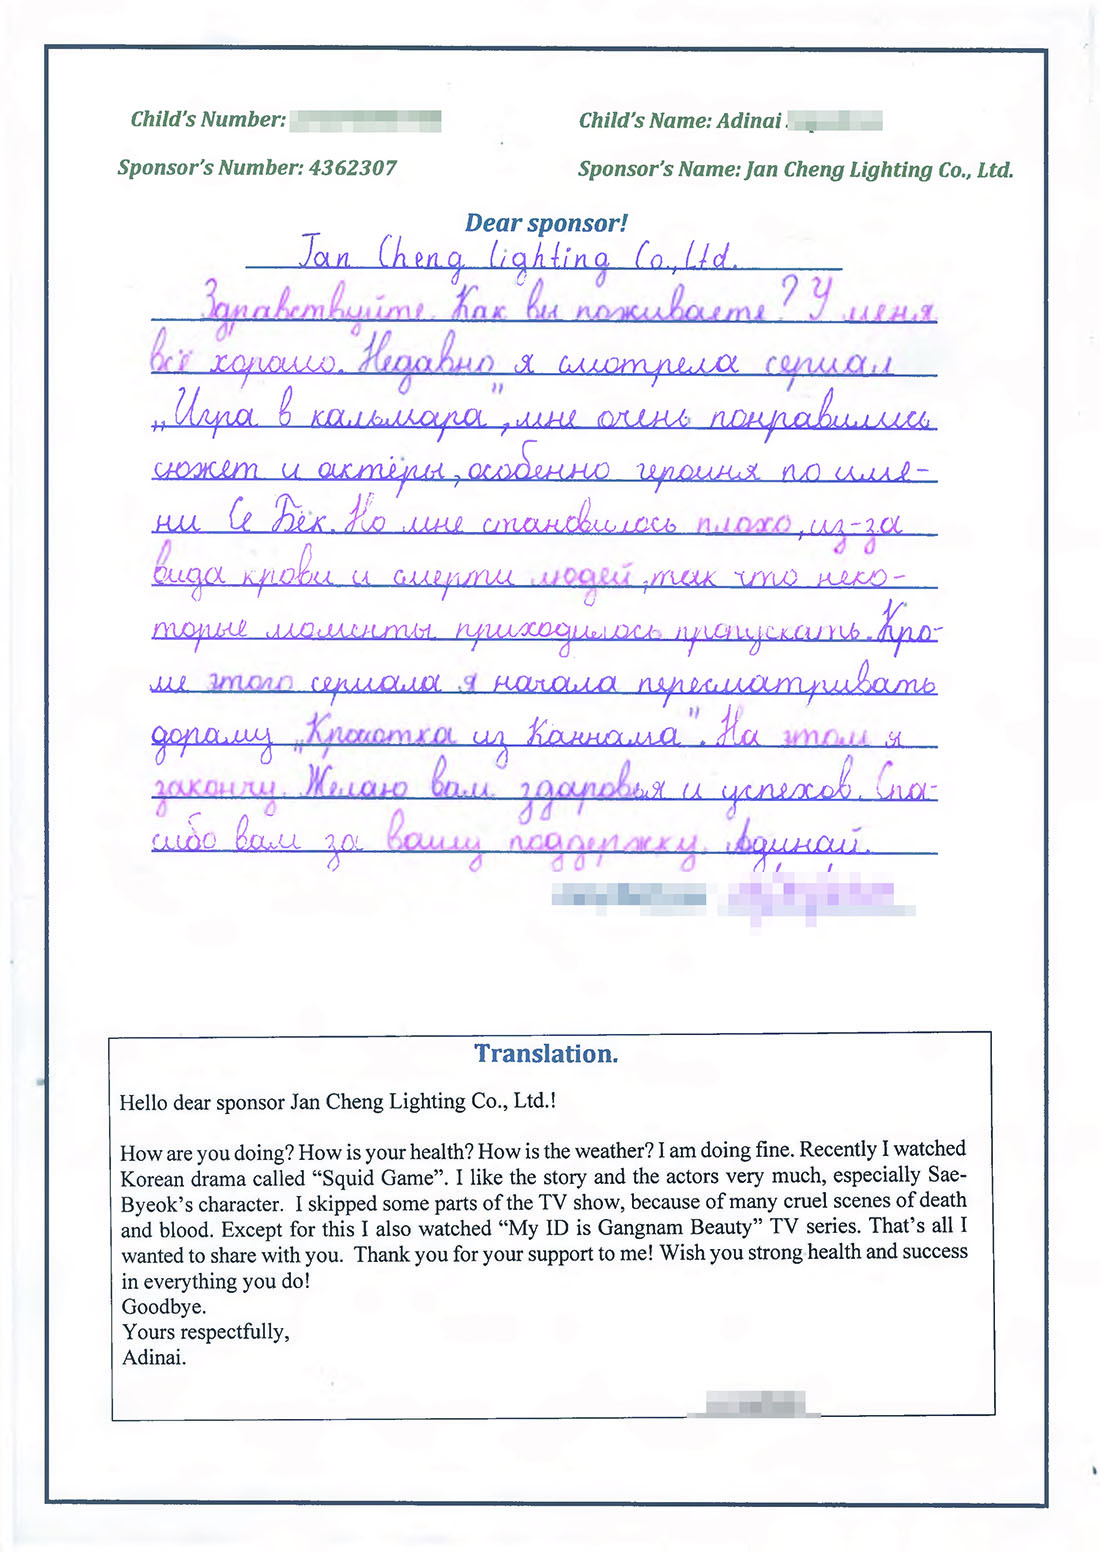 Child's Number:
Child's Name: Adinai
Sponsor's Number: 4362307
Sponsor's Name: Jan Cheng Lighting Co., Ltd.
Dear sponsor!
Jan Cheng Lighting Co., Ltd.
Здравствуйте. Как вы поживаете? У меня
всё хорошо. Недавно я смотрела сериал
„Игра в кальмара", мне очень понравились
сюжет и актёры, особенно героиня по име-
ни Се Бёк. Но мне становилось плохо, из-за
вида крови и смерти людей, так что неко-
торые моменты приходилось пропускать. Кро-
ме этого сериала я начала пересматривать
дораму „Красотка из Каннама". На этом я
закончу. Желаю вам здоровья и успехов. Спа-
сибо вам за вашу поддержку. Адинай.
Translation.
Hello dear sponsor Jan Cheng Lighting Co., Ltd.!
How are you doing? How is your health? How is the weather? I am doing fine. Recently I watched
Korean drama called “Squid Game”. I like the story and the actors very much, especially Sae-
Byeok’s character. I skipped some parts of the TV show, because of many cruel scenes of death
and blood. Except for this I also watched “My ID is Gangnam Beauty” TV series. That’s all I
wanted to share with you. Thank you for your support to me! Wish you strong health and success
in everything you do!
Goodbye.
Yours respectfully,
Adinai.